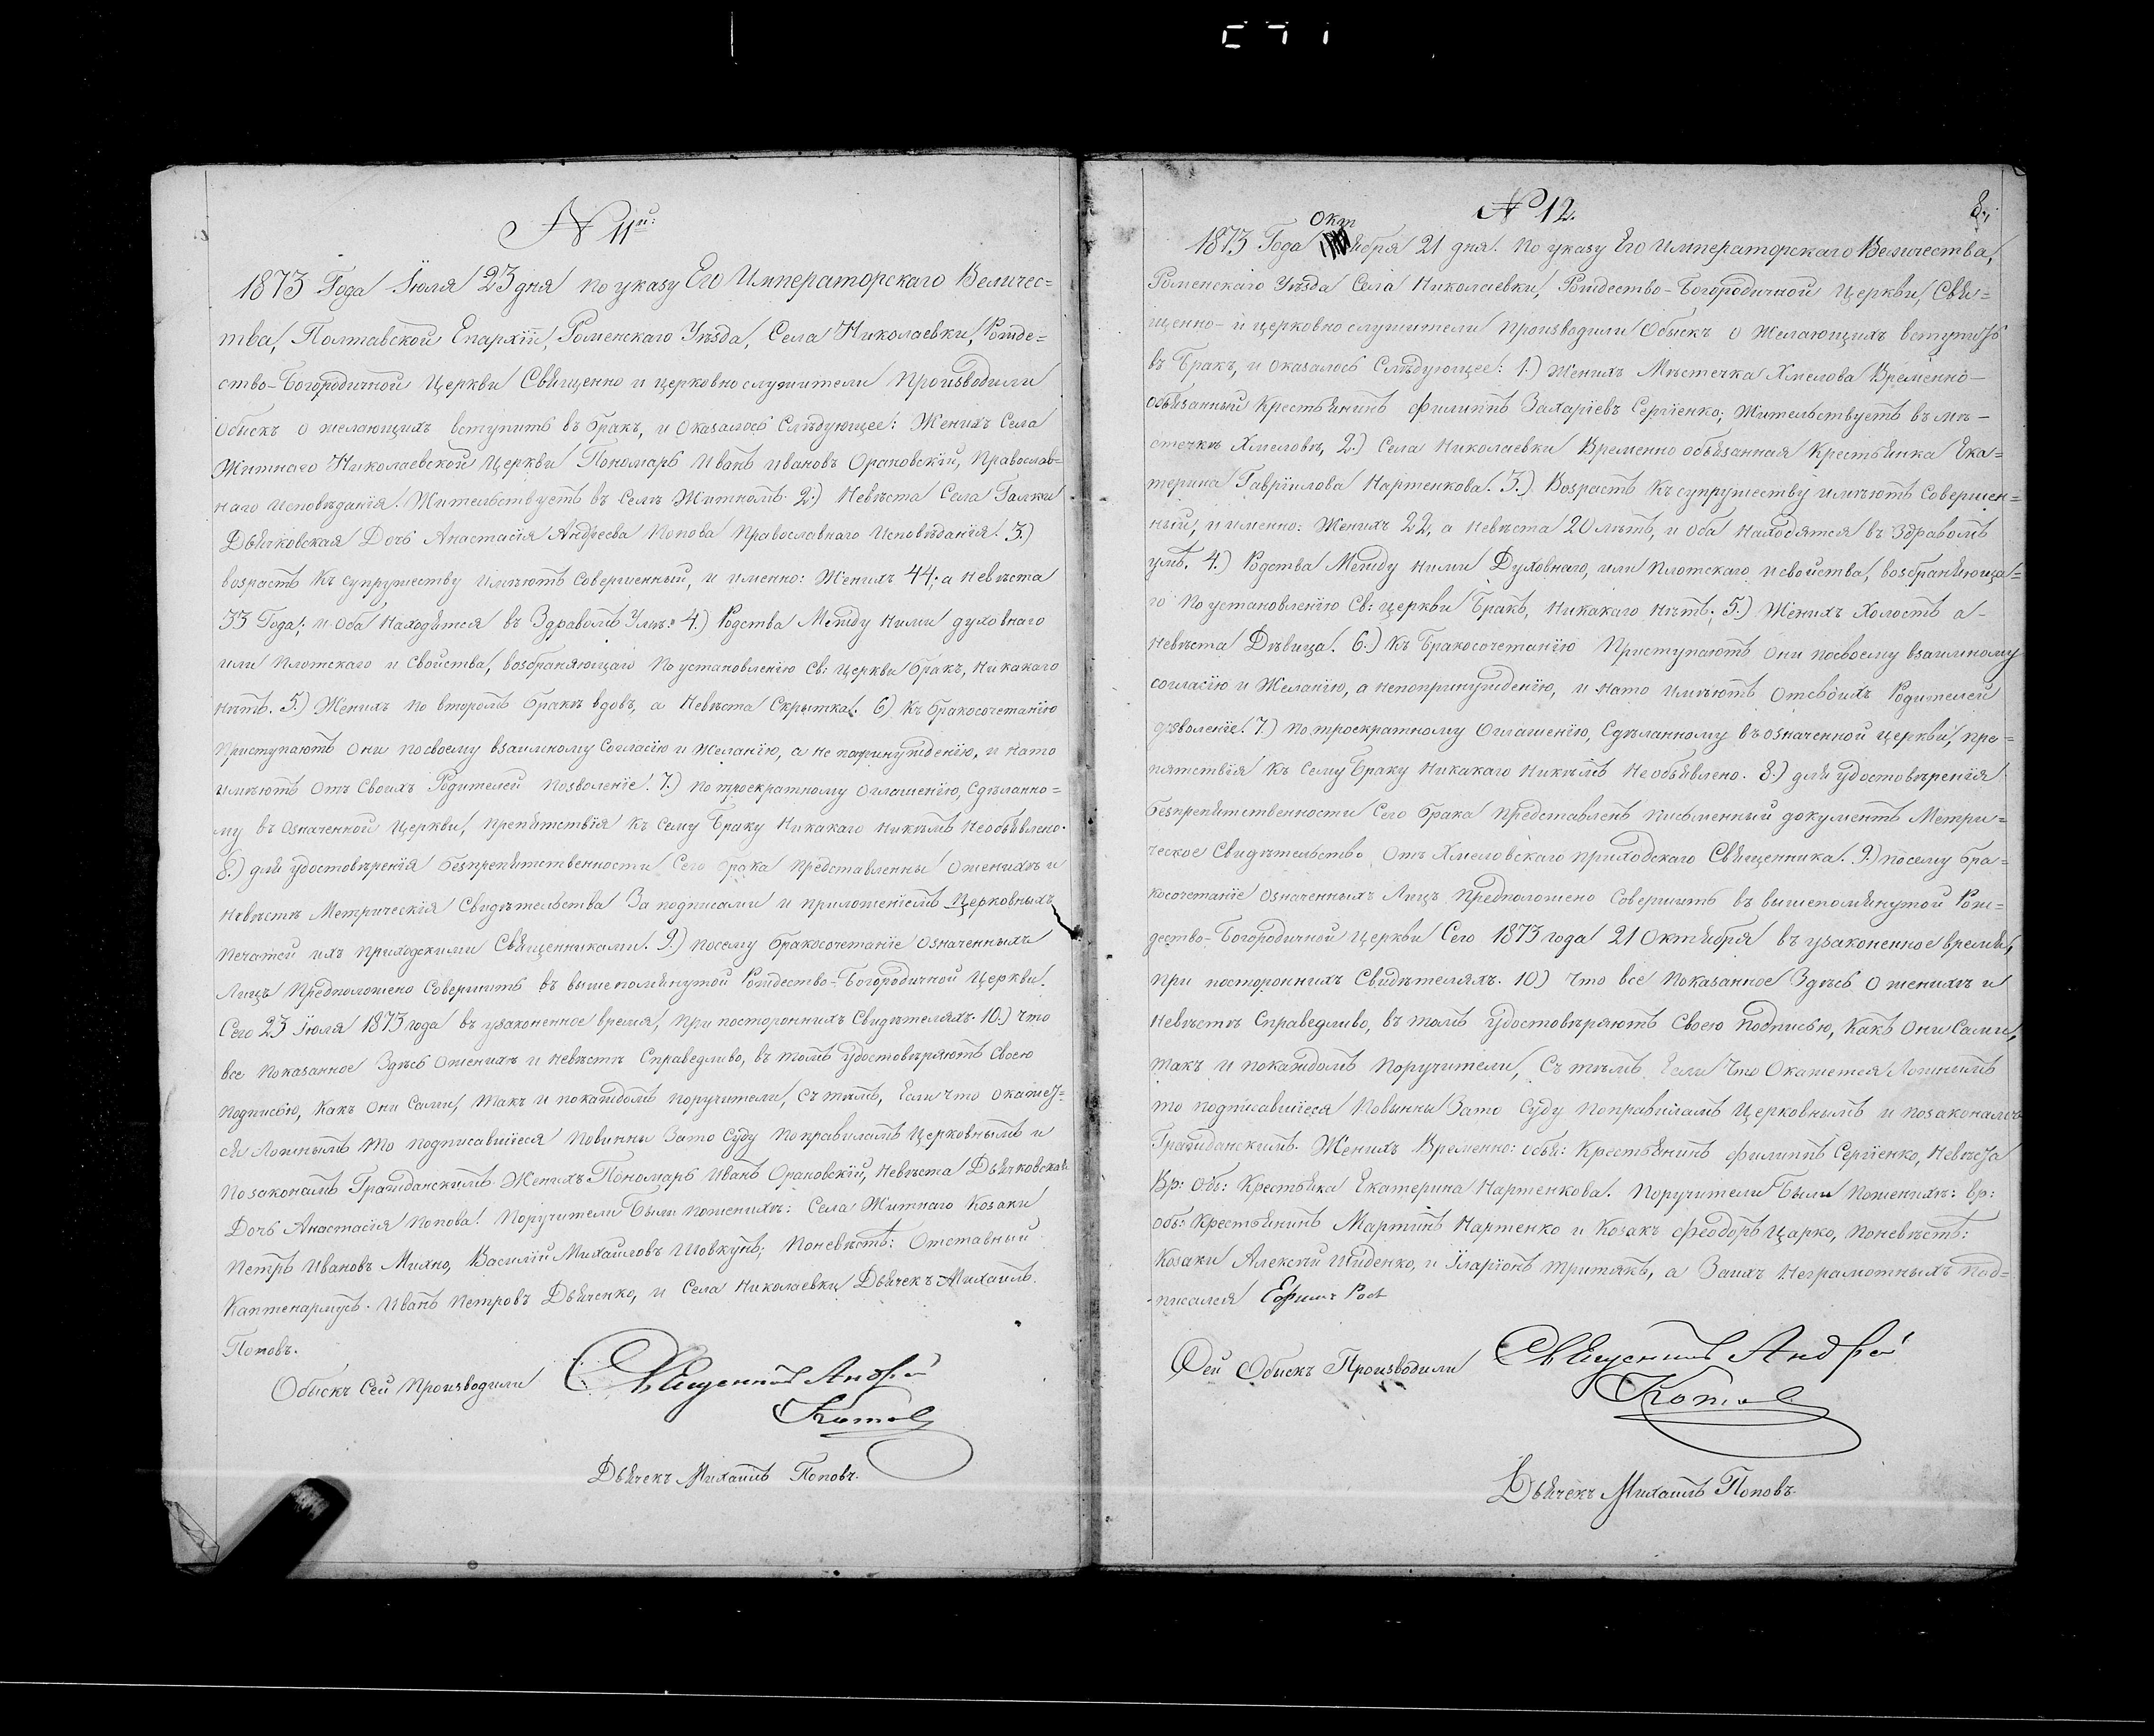 № 11й:
1873 Года Іюля 23 дня по указу Его Императорскаго Величес=
тва, Полтавской Епархіи, Роменскаго Уѣзда, Села Николаевки, Рожде=
ство-Богородичной Церкви Священно и церковно служители производили
Обыскъ о желающихъ вступить въ бракъ, и оказалось слѣдующее: Женихъ Села
Житнаго Николаевской Церкви Пономарь Иванъ Ивановъ Орановскій, Православ=
наго исповѣданія. Жительствуетъ въ селѣ Житномъ. 2.) Невѣста Села Галки
Дьячковская Дочь Анастасія Андреева Попова Православнаго Исповѣданія. 3.)
возрастъ къ супружеству имѣютъ совершенный, и именно: Женихъ 44; а невѣста
33 Года; и оба находятся въ здравомъ Умѣ. 4.) Родства между ними духовнаго
или плотскаго и свойства, возбраняющаго по установленію Св: церкви бракъ, никакаго
нѣтъ. 5.) Женихъ по второмъ бракѣ вдовъ, а невѣста Скрытка. 6) Къ бракосочетанію
приступаютъ они посвоему взаимному согласію и желанію, а не попринужденію, и на то
имѣютъ отъ своихъ Родителей позволеніе. 7.) По троекратному оглашенію, сдѣланно=
му въ означенной церкви, препятствія къ сему браку никакаго никѣмъ необъявлено.
8.) для удостовѣренія безпрепятственности сего брака представленны о женихѣ и
невѣстѣ Метрическія Свидѣтельства за подписами и приложеніемъ Церковныхъ
печатей ихъ приходскими Священниками. 9.) посему бракосочетаніе означенныхъ
Лицъ предположено совершить въ вышепомянутой Рождество-Богородичной Церкви.
Сего 23 Іюля 1873 года въ узаконенное время, при постороннихъ Свидѣтеляхъ. 10.) Что
все показанное здѣсь о женихѣ и невѣстѣ справедливо, въ томъ удостовѣряютъ своею
подписью, какъ они сами, такъ и покаждомъ поручители, съ тѣмъ, Если что окажет=
ся ложнымъ то подписавшіеся повинны зато суду поправиламъ церковнымъ и
позаконамъ Гражданскимъ. Женихъ Пономарь Иванъ Орановскій, невѣста Дьячковская
Дочь Анастасія Попова. Поручители были поженихѣ: Села Житнаго Козаки
Петръ Ивановъ Михно, Василій Михайловъ Шовкунъ; Поневѣстѣ: Отставный
Каптенармусъ Иванъ Петровъ Дьяченко, и Села Николаевки Дьячекъ Михаилъ
Поповъ.
Обыскъ сей производили Священникъ Андрей
Котов
Дьячекъ Михаилъ Поповъ.
№ 12.
8.
Окт
1873 Года ября 21 дня. По указу Его Императорскаго Величества,
Роменскаго Уѣзда Села Николаевки, Рождество-Богородичной Церкви, Свя=
щенно- и церковно служители производили Обыскъ о желающихъ вступить
въ Бракъ, и оказалось слѣдующее: 1.) Женихъ Мѣстечка Хмелова Временно-
обязанный Крестьянинъ Филиппъ Захаріевъ Сергіенко; Жительствуетъ въ мѣ-
стечкѣ Хмеловѣ, 2.) Села Николаевки Временно обязанная Крестьянка Ека=
терина Гавріилова Нартенкова. 3.) Возрастъ къ супружеству имѣютъ совершен=
ный, и именно: Женихъ 22, а невѣста 20 лѣтъ, и оба находятся въ здравомъ
умѣ. 4.) Родства между ними Духовнаго, или плотскаго и свойства, возбраняюща=
го по установленію Св: церкви Бракъ, никакаго нѣтъ; 5.) Женихъ холостъ а-
невѣста Дѣвица. 6.) Къ Бракосочетанію приступаютъ они посвоему взаимному
согласію и желанію, а непопринужденію, и нато имѣютъ отсвоихъ Родителей
дозволеніе. 7.) по троекратному Оглашенію, сдѣланному въ означенной церкви, пре=
пятствія къ сему Браку никакаго никѣмъ необъявлено. 8.) для удостовѣренія
безпрепятственности сего брака представленъ письменный документъ Метри=
ческое Свидѣтельство отъ Хмеловскаго приходскаго Священника. 9.) посему бра=
косочетаніе означенныхъ Лицъ предположено совершить въ вышепомянутой Рож=
дество-Богородичной Церкви Сего 1873 года 21 Октября въ узаконенное время,
при постороннихъ Свидѣтеляхъ. 10) что все показанное здѣсь о женихѣ и
невѣстѣ справедливо, въ томъ удостовѣряютъ своею подписью, какъ они сами,
такъ и покаждомъ поручители, съ тѣмъ Если что окажется ложнымъ
то подписавшіеся повинны зато суду поправиламъ церковнымъ и позаконамъ
Гражданскимъ. Женихъ Временно: обя: Крестьянинъ Филиппъ Сергіенко, невѣста
Вр: Обя: Крестьянка Екатерина Нартенкова. Поручители были поженихѣ: вр:
обя: Крестьянинъ Мартинъ Нартенко и Козакъ Феодоръ Царко, поневѣстѣ:
Козаки Алексѣй Шиденко, и Іларіонъ Тритякъ, а за ихъ неграмотныхъ под=
писался Ефимъ
Сей Обыскъ Производили Священникъ Андрей
Котов
Дьячекъ Михаилъ Поповъ.